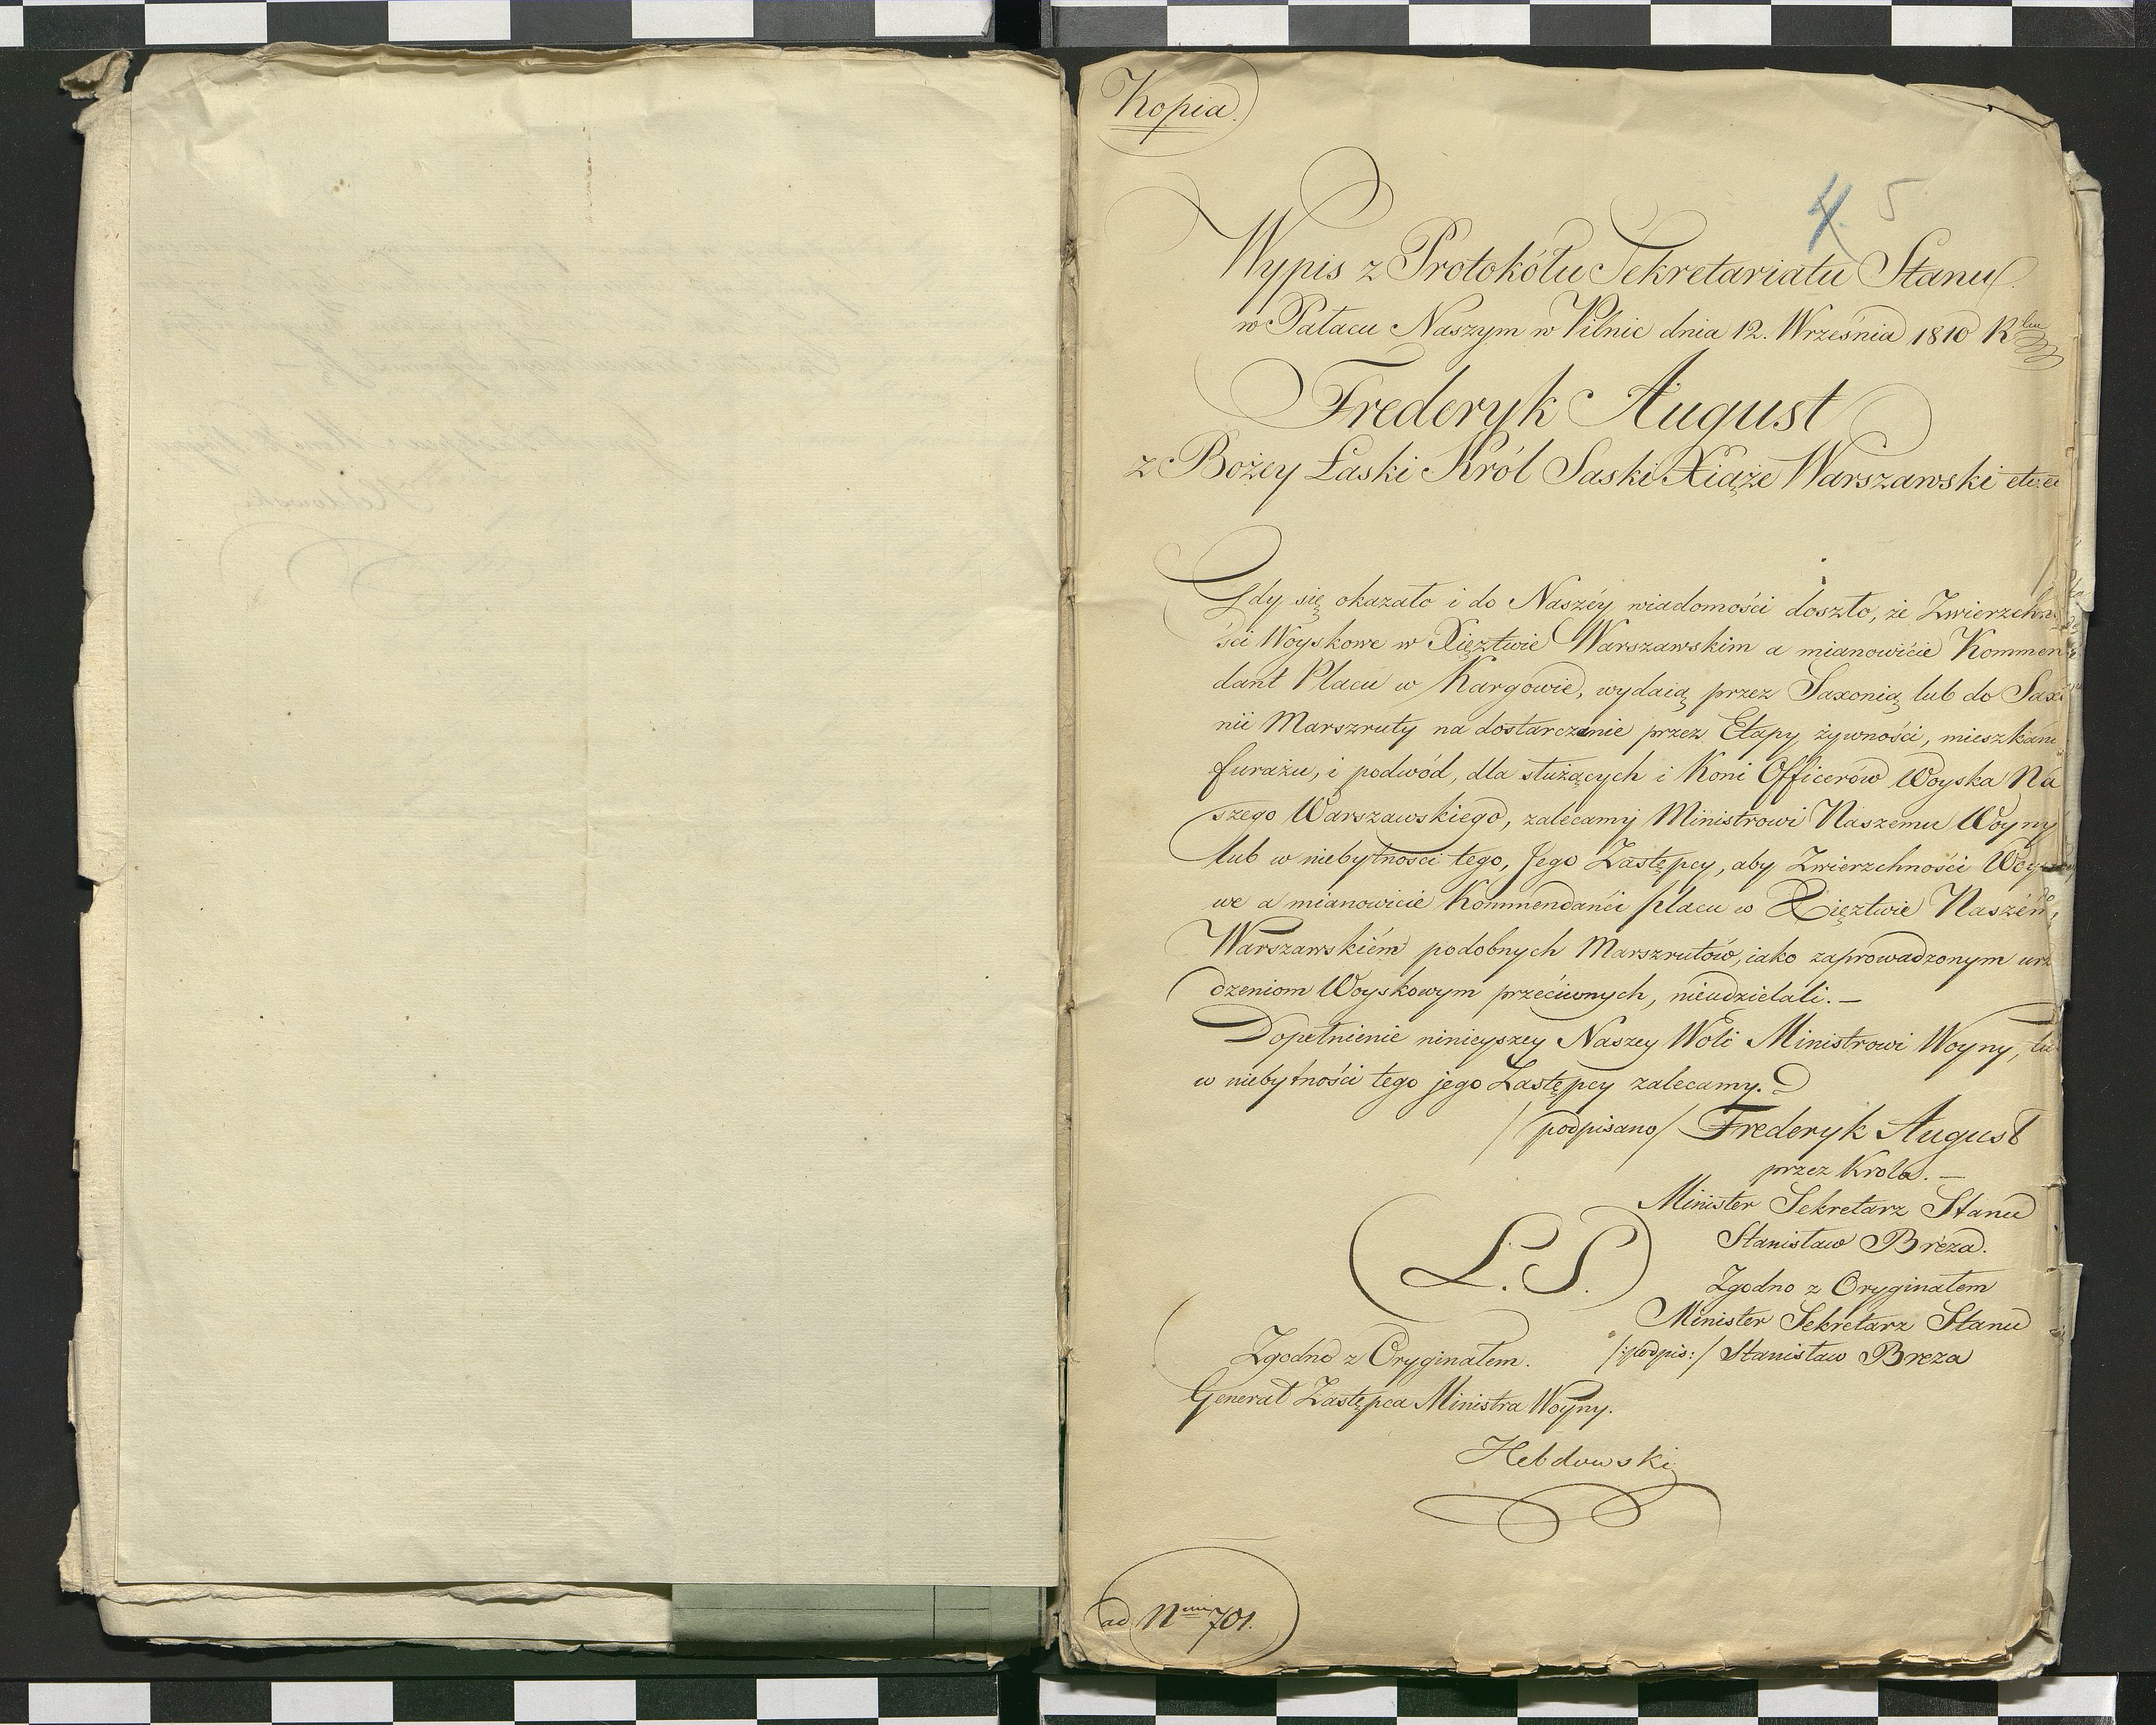 Kopia.
4 5
Wypis z Protokółu Sekretariatu Stanu
w Pałacu Naszym w Pilnic dnia 12. Września 1810 R
Frederyk August
z Bożey Łaski Król Saski Xiąże Warszawski etc. et
Gdy się okazało i do Naszéy wiadomości doszło, że Zwierzchno
ści Woyskowe w Xięztwie Warszawskim a mianowicie Kommen
dant Placu w Kargowie, wydaią przez Saxonią lub do Saxo
nii Marszruty na dostarczanie przez Etapy żywności, mieszkani
furażu, i podwód, dla służących i Koni Officerów Woyska Na
szego Warszawskiego, zalecamy Ministrowi Naszemu Woyny
lub w niebytności tego, Jego Zastępcy, aby Zwierzchności Woysko
we a mianowicie Kommendańci placu w Xięztwie Naszém
Warszawskiém podobnych Marszrutów, iako zaprowadzonym urz
dzeniom Woyskowym przeciwnych, nieudzielali. —
Dopełnienie ninieyszey Naszey Woli Ministrowi Woyny, lu
w niebytności tego jego Zastępcy zalecamy.
/podpisano/ Frederyk August
przez Krola. —
Minister Sekretarz Stanu
Stanisław Breza.
L. S.
Zgodno z Oryginałem
Minister Sekretarz Stanu
/:podpis:/ Stanisław Breza
Zgodno z Oryginałem.
Generał Zastępca Ministra Woyny.
Hebdowski
ad Num 701.